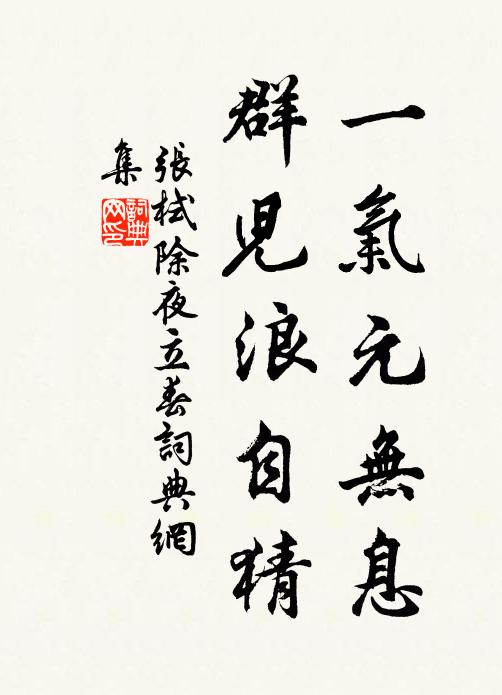 一氣元無息
群児浪自猜
張栻除夜立春詞典網
集
詞典
网印